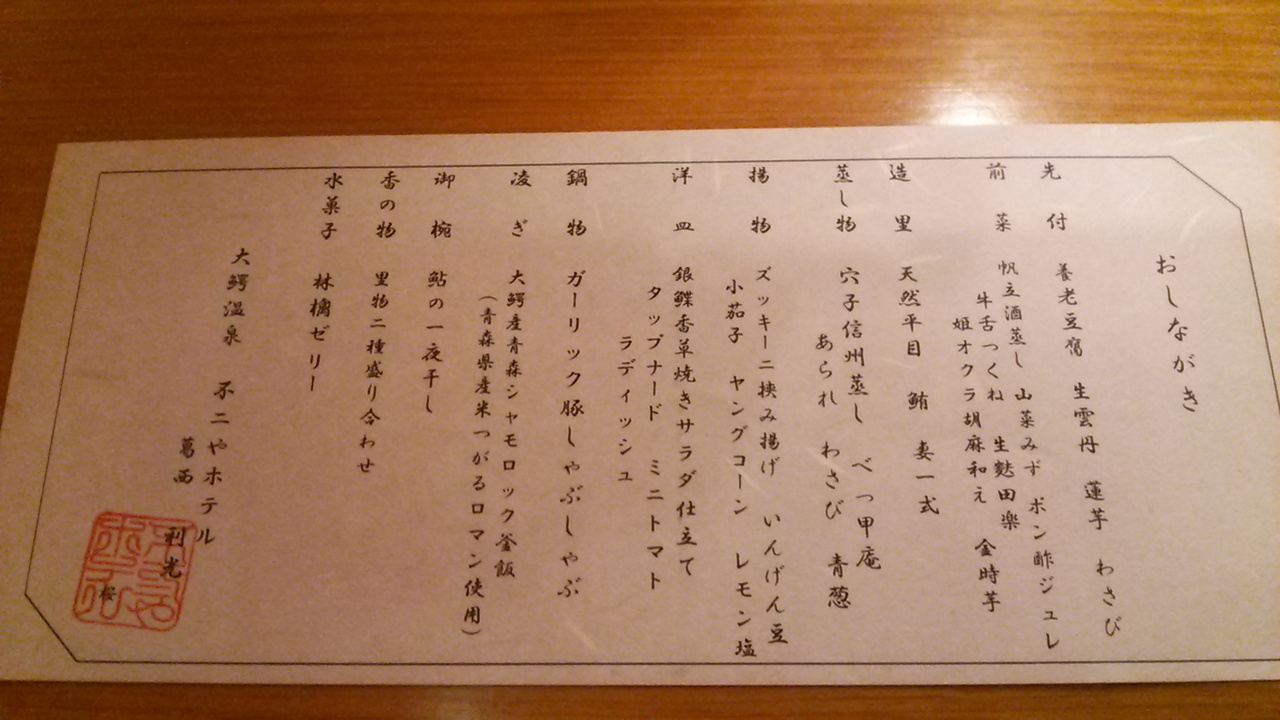 おしながき
先付 養老豆腐 生雲丹 蓮芋 わさび
前菜 帆立酒蒸し 山菜みず ポン酢ジュレ
牛舌つくね 生麩田楽 金時芋
姫オクラ胡麻和え
造里 天然平目 鮪 妻一式
蒸し物 穴子信州蒸し べっ甲庵
あられ わさび 青葱
揚物 ズッキーニ挟み揚げ いんげん豆
小茄子 ヤングコーン レモン塩
洋皿 銀鰈香草焼きサラダ仕立て
タップナード ミニトマト
ラディッシュ
鍋物 ガーリック豚しゃぶしゃぶ
凌ぎ 大鰐産青森シャモロック釜飯
(青森県産米つがるロマン使用)
御椀 鮎の一夜干し
香の物 里物二種盛り合わせ
水菓子 林檎ゼリー
大鰐温泉 不二やホテル
葛西 利光
桜